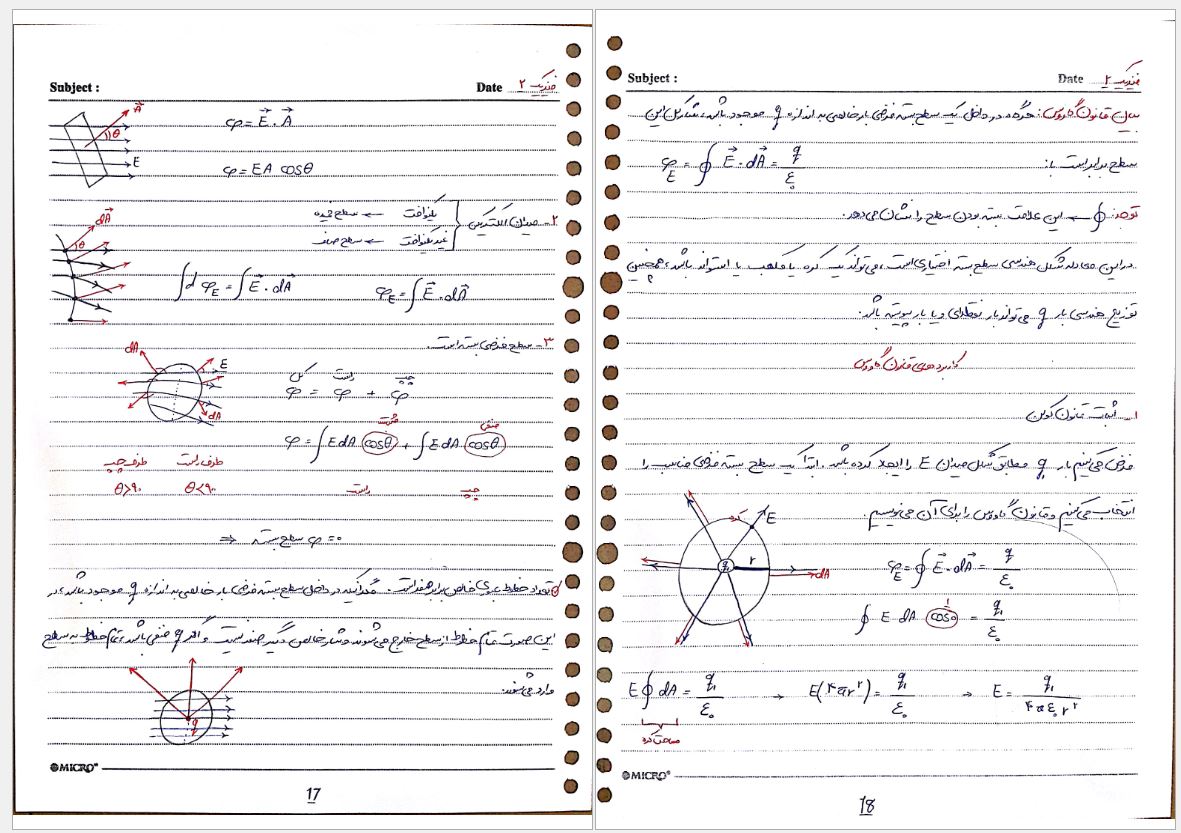 Subject :
Date فیزیک ۲
A⃗
θ
E
φ = E⃗ . A⃗
φ = EA cosθ
۲- میدان الکتریکی
یکنواخت ← سطح خمیده
غیر یکنواخت ← سطح صاف
dA⃗
θ
∫d φE = ∫E⃗ . dA⃗
φE = ∫E⃗ . dA⃗
۳- سطح فرضی بسته است.
dA
E
dA
کل راست چپ
φ = φ + φ
مثبت منفی
φ = ∫E dA cosθ + ∫E dA cosθ
طرف چپ طرف راست
θ>۹۰ θ<۹۰
راست چپ
⇒ φ سطح بسته = ۰
تعداد خطوط عبوری خالص برابر صفر است. در داخل سطح بسته فرضی بار خالصی به اندازه q موجود باشد، در
این صورت تمام خطوط از سطح خارج می‌شوند و شار خالص دیگر صفر نیست و اگر q منفی باشد، تمام خطوط به سطح
وارد می‌شوند.
q
MICRO
17
Subject :
Date فیزیک ۲
بیان قانون گاوس: هرگاه در داخل یک سطح بسته فرضی بار خالصی به اندازه q موجود باشد، شار کل این
سطح برابر است با:
φE = ∮ E⃗ . dA⃗ = q/ε۰
توجه: ∮ ← این علامت بسته بودن سطح را نشان می‌دهد.
در این معادله شکل هندسی سطح بسته اختیاری است، می‌تواند یک کره یا مکعب یا استوانه باشد، همچنین
توزیع هندسی بار q می‌تواند بار نقطه‌ای و یا بار پیوسته باشد.
کاربردهای قانون گاوس
۱- اثبات قانون کولن
فرض می‌کنیم بار q۱ مطابق شکل میدان E را ایجاد کرده باشد. ابتدا یک سطح بسته فرضی مناسب را
انتخاب می‌کنیم و قانون گاوس را برای آن می‌نویسیم.
E
q
r
dA
φE = ∮ E⃗ . dA⃗ = q/ε۰
۱
∮ E dA cos۰ = q۱/ε۰
E∮ dA = q۱/ε۰ → E(۴πr۲) = q۱/ε۰ → E = q۱/۴πε۰r۲
مساحت کره
MICRO
18